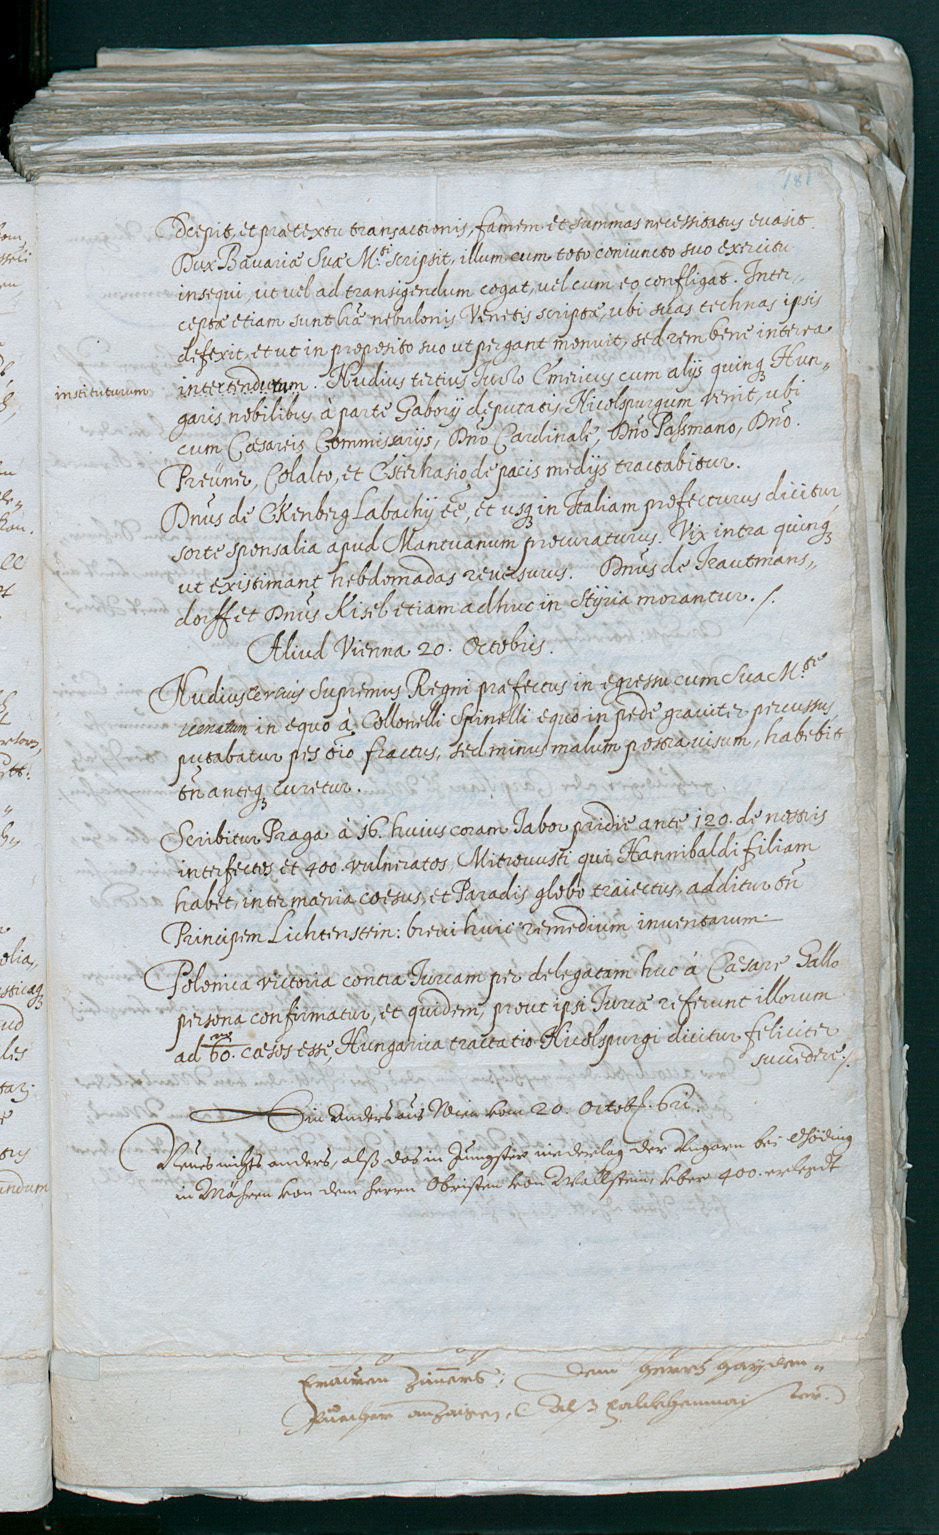 181
Dcepit, et prætextu transactionis, famem et summas necessitatis euasit.
Dux Bavariæ Suæ M.ti scripsit, illum cum toto coniuncto suo exercitu
insequi, ut vel ad transigendum cogat, vel cum eo confligat. Inter„
ceptæ etiam sunt lræ nebulonis Venetis scriptæ, ubi suas technas ipsis
detexit, et ut in proposito suo ut pergant monuit, sed rem bene interea
intertendutum. Nudius tertius Turzo Emericus cum alijs quinq Hun„
instituturum
garis nobilibus à parte Gaborij deputatis Nicolspurgum venit, ubi
cum Cæsareis Commissarijs, Dno Cardinale, Dno Pasmano, Dno.
Preüner, Colalto, et Esterhasio de pacis medijs tractabitur.
Dnus de Ekenberg Labachij etc, et usq in Italiam profecturus dicitur
sorte sponsalia apud Mantuanum procuraturus. Vix intra quinq
ut existimant hebdomadas reuersurus. Dnus de Trautmans„
dorff et Dnus Kisel etiam adhuc in Styria morantur./.
Aliud Vienna 20. Octobris.
Nudiustertius Supremus Regni præfectus in egressu cum Sua M.te
venatum in equo à Collonelli Spinelli equo in pede grauiter percussus
putabatur pes oio fractus, sed minus malum postea uisum, habebit
tn anteq curetur.
Scribitur Praga à 16. huius coram Tabor pridie ante 120. de nostris
interfectos et 400. vulneratos, Mitrouusti qui Hannibaldi filiam
habet, inter mania coesus, et Paradis globo traiectus, additur tn
Principem Lichtenstein: breui huic remedium inuentarum.
Polonica victoria contra Turcam per delegatam huc à Cæsare Gallo
persona confirmatur, et quidem, prout ipsi Turcæ referunt illorum
ad 60. cæsos esse, Hungarica tractatio Nicolspurgi dicitur feliciter
succedere./.
Ein anders aus Wien vom 20. Octob. 621.
Neues nichts anders, alß das in Jungster niderlag der Ungarn bei Göding
in Mähren von dem herrn Obristen von Wallstein ober 400. erlegdt
dem herrn Hayden„